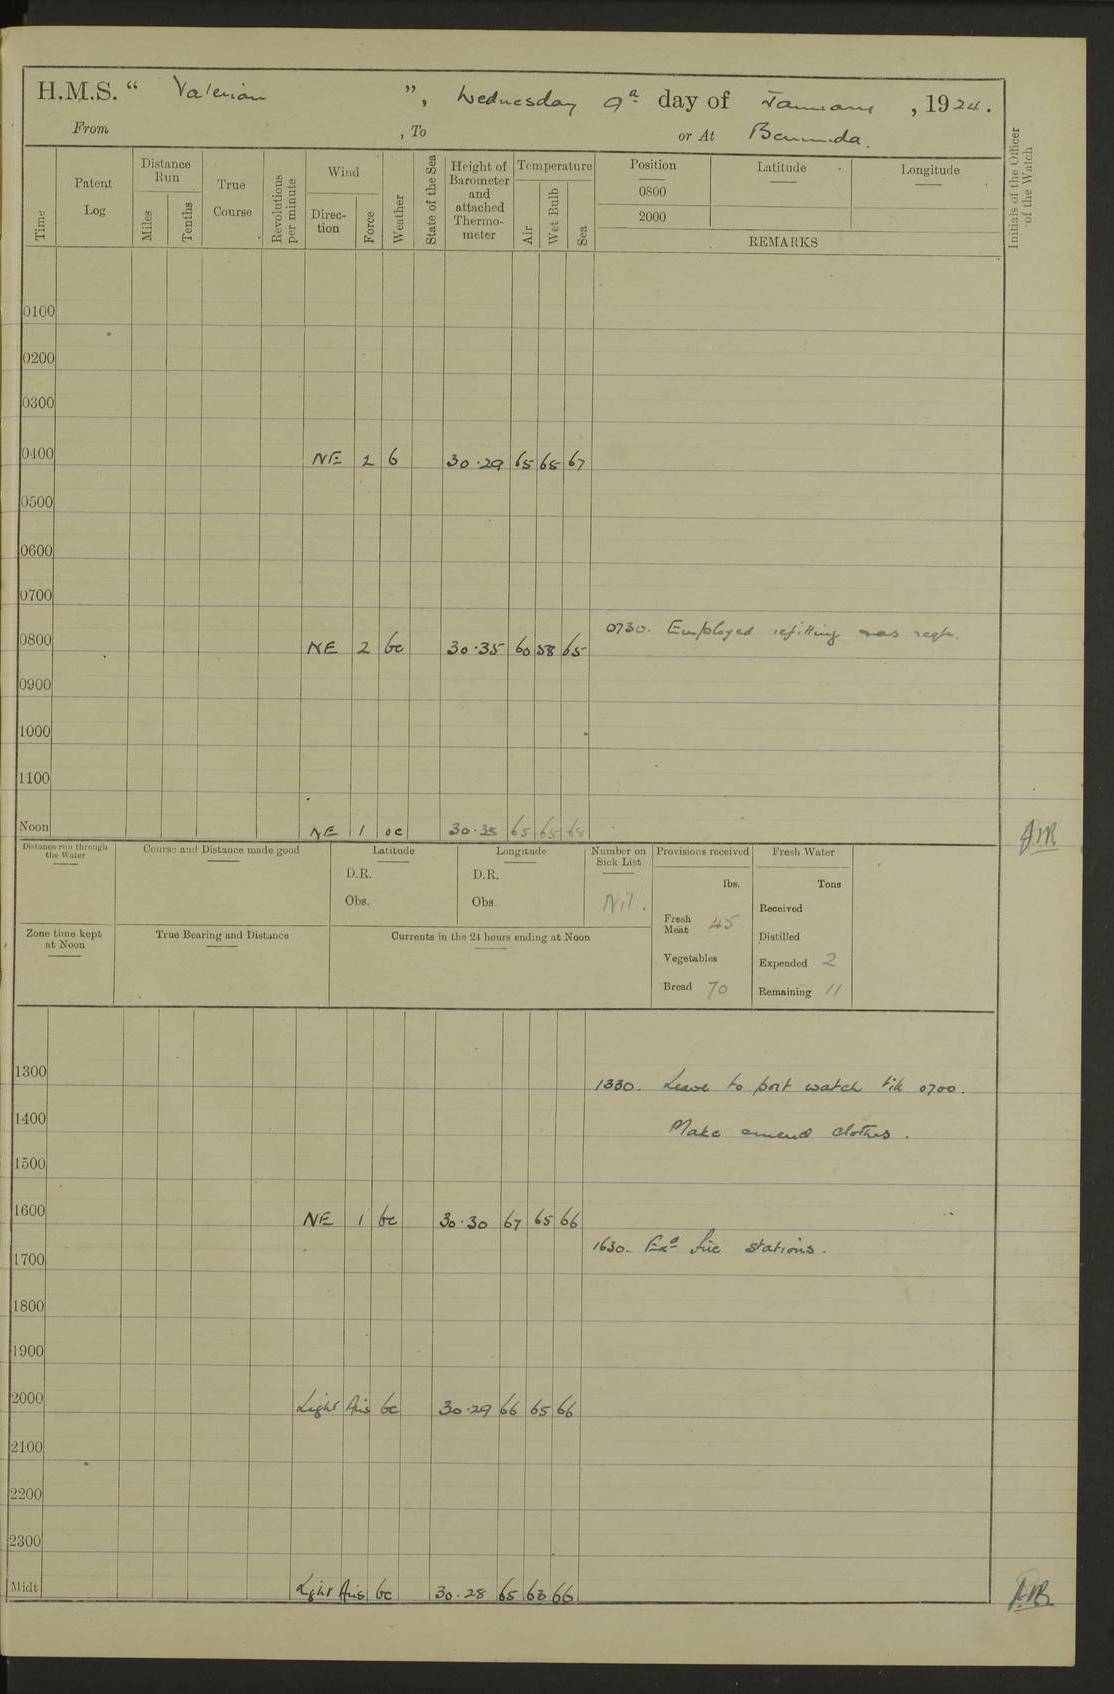 H.M.S. “ Valerian ”, Wednesday 9th day of January, 1924.
From , To or At Bermuda.
Time
Patent Log
Distance Run
Miles
Tenths
True Course
Revolutions per minute
Wind
Direc-tion
Force
Weather
State of the Sea
Height of Barometer and attached Thermo-meter
Temperature
Air
Wet Bulb
Sea
Position Latitude Longitude
0800
2000
REMARKS
Initials of the Officer of the Watch
0100
0200
0300
0400 NE 2 b 30.29 65 65 67
0500
0600
0700
0730. Employed refitting
0800 NE 2 bc 30.35 60 58 65
0900
1000
1100
Noon NE 1 oc 30.35 65 65 68
Distance run through the Water
Course and Distance made good
Latitude
D.R.
Obs.
Longitude
D.R.
Obs.
Number on Sick List
Nil.
Provisions received
lbs.
Fresh Meat 45
Vegetables
Bread 70
Fresh Water
Tons
Received
Distilled
Expended 2
Remaining 11
Zone time kept at Noon
True Bearing and Distance
Currents in the 24 hours ending at Noon
1300
1330. Leave to port watch till 0700.
1400
Make & mend clothes.
1500
1600 NE 1 bc 30.30 67 65 66
1630. Exd fire stations.
1700
1800
1900
2000 Light Airs bc 30.29 66 65 66
2100
2200
2300
Midt Light Airs bc 30.28 65 63 66